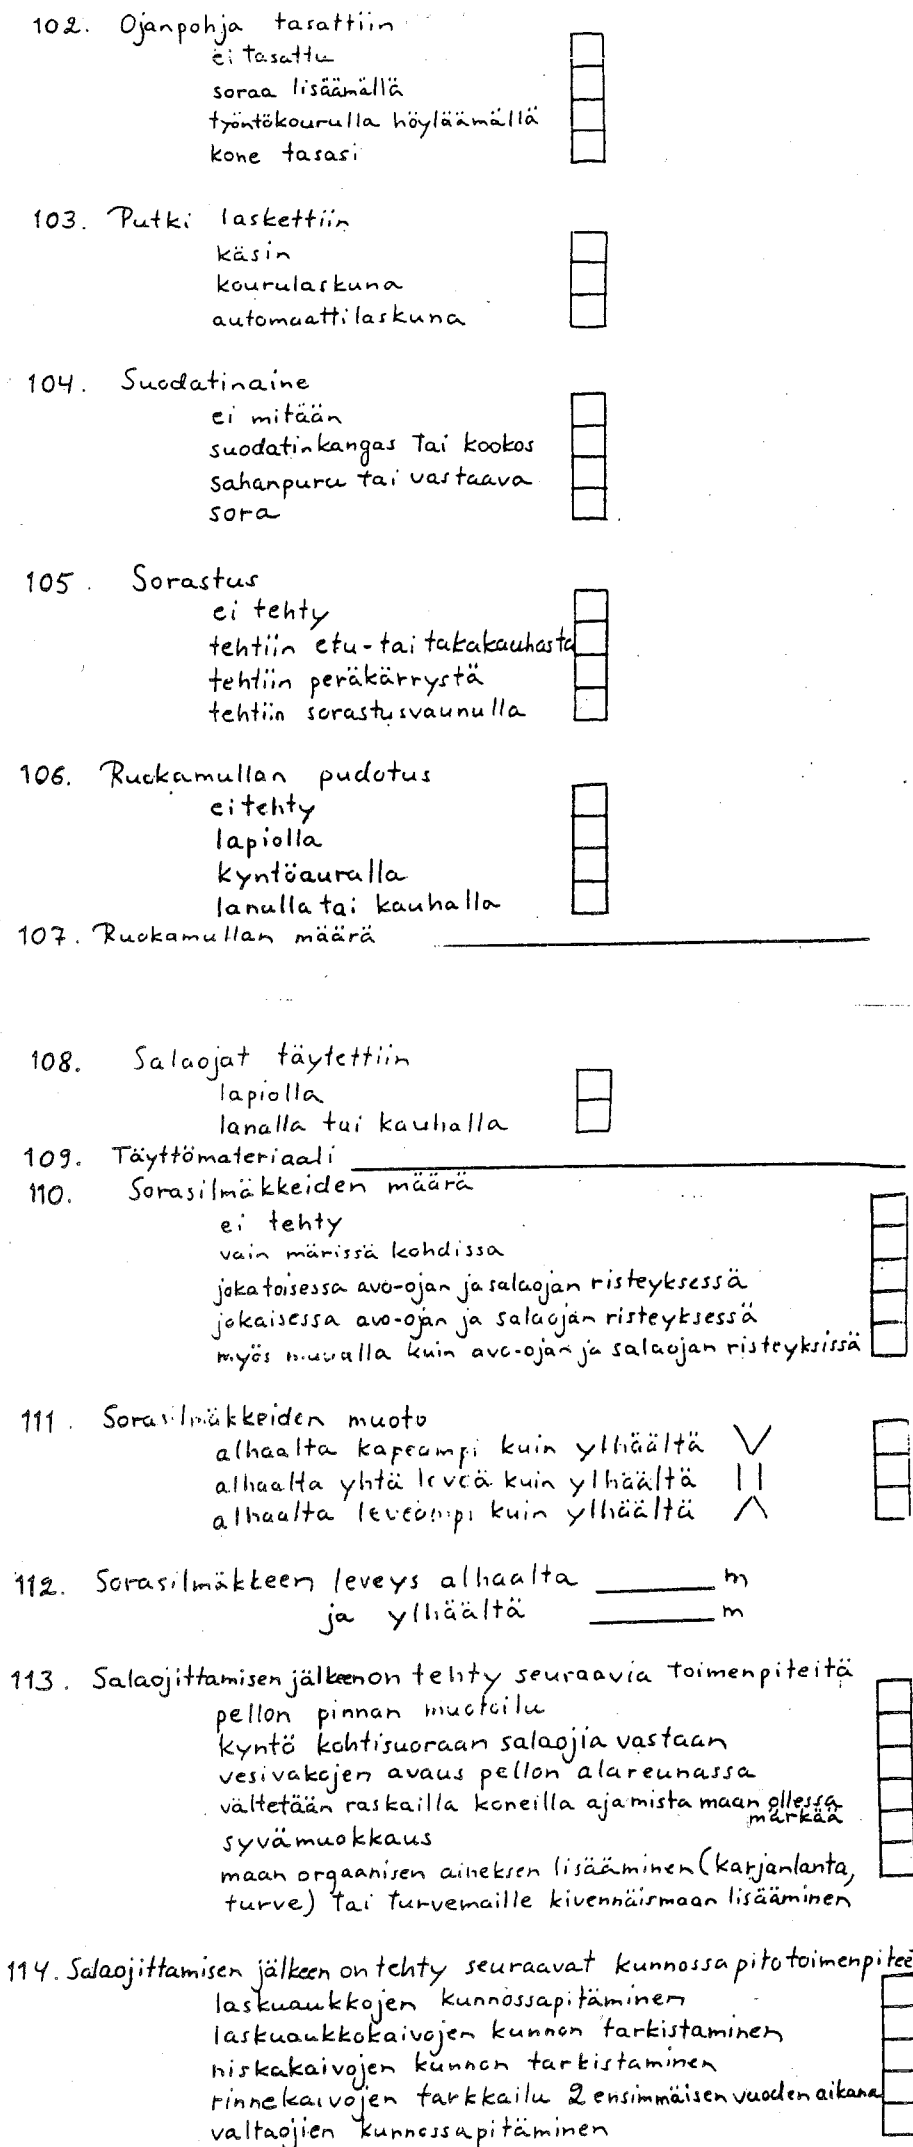 102. Ojanpohja tasattiin
ei tasattu
soraa lisäämällä
työntökourulla höyläämällä
kone tasasi
103. Putki laskettiin
käsin
kourulaskuna
automaattilaskuna
104. Suodatinaine
ei mitään
suodatinkangas tai kookos
sahanpuru tai vastaava
sora
105. Sorastus
ei tehty
tehtiin etu-tai takakauhasta
tehtiin peräkärrystä
tehtiin sorastusvaunulla
106. Ruokamullan pudotus
ei tehty
lapiolla
kyntöauralla
lanulla tai kauhalla
107. Ruokamullan määrä
108. Salaojat täytettiin
lapiolla
lanalla tai kauhalla
109. Täyttömateriaali
110. Sorasilmäkkeiden määrä
ei tehty
vain märissä kohdissa
joka toisessa avo-ojan ja salaojan risteyksessä
jokaisessa avo-ojan ja salaojan risteyksessä
myös muualla kuin avo-ojan ja salaojan risteyksissä
111. Sorasilmäkkeiden muoto
alhaalta kapeampi kuin ylhäältä
alhaalta yhtä leveä kuin ylhäältä
alhaalta leveämpi kuin ylhäältä
112. Sorasilmäkkeen leveys alhaalta m
ja ylhäältä m
113. Salaojittamisen jälkeen on tehty seuraavia toimenpiteitä
pellon pinnan muotoilu
kyntö kohtisuoraan salaojia vastaan
vesivakojen avaus pellon alareunassa
vältetään raskailla koneilla ajamista maan ollessa
märkää
syvämuokkaus
maan orgaanisen aineksen lisääminen (karjanlanta,
turve) tai turvemaille kivennäismaan lisääminen
114. Salaojittamisen jälkeen on tehty seuraavat kunnossapitotoimenpitee
laskuaukkojen kunnossapitäminen
laskuaukkokaivojen kunnon tarkistaminen
niskakaivojen kunnon tarkistaminen
rinnekaivojen tarkkailu 2 ensimmäisen vuoden aikana
valtaojien kunnossapitäminen